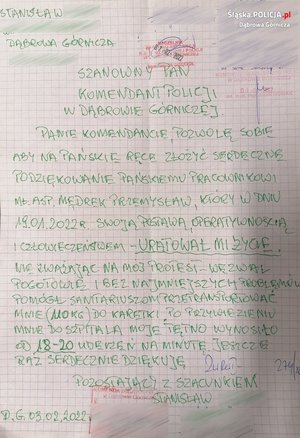 STANISŁAW
Śląska.POLICJA.pl
Dąbrowa Górnicza
DĄBROWA GÓRNICZA
SZANOWNY PAN
KOMENDANT POLICJI
W DĄBROWIE GÓRNICZEJ
PANIE KOMENDANCIE, POZWOLĘ SOBIE
ABY NA PAŃSKIE RĘCE ZŁOŻYĆ SERDECZNE
PODZIĘKOWANIE PAŃSKIEMU PRACOWNIKOWI
MŁ.ASP. MĘDREK PRZEMYSŁAW, KTÓRY W DNIU
19.01.2022r. SWOJĄ POSTAWĄ, OPERATYWNOŚCIĄ
I CZŁOWIECZEŃSTWEM - URATOWAŁ MI ŻYCIE.
NIE ZWAŻAJĄC NA MÓJ PROTEST - WEZWAŁ
POGOTOWIE I BEZ NAJMNIEJSZYCH PROBLEMÓW
POMÓGŁ SANITARIUSZOM PRZETRANSPORTOWAĆ
MNIE (110KG) DO KARETKI. PO PRZYWIEZIENIU
MNIE DO SZPITALA MOJE TĘTNO WYNOSIŁO
OD 18-20 UDERZEŃ NA MINUTĘ. JESZCZE
RAZ SERDECZNIE DZIĘKUJĘ
POZOSTAJĄCY Z SZACUNKIEM
STANISŁAW
D.G. 03.02.2022r.